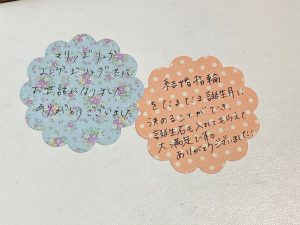 マリッジリング
エンゲージリング共に
お世話になりました
ありがとうございました
結婚指輪
をたまたま誕生月に
決めることができ、
誕生石も入れてもらえて
大満足です。
ありがとうございました!